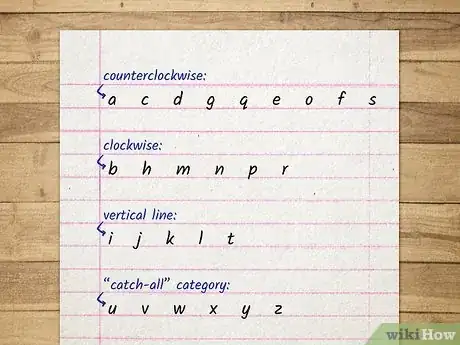 counterclockwise:
a c d g q e o f s
clockwise:
b h m n p r
vertical line:
i j k l t
“catch-all” category:
u v w x y z
wikiHow